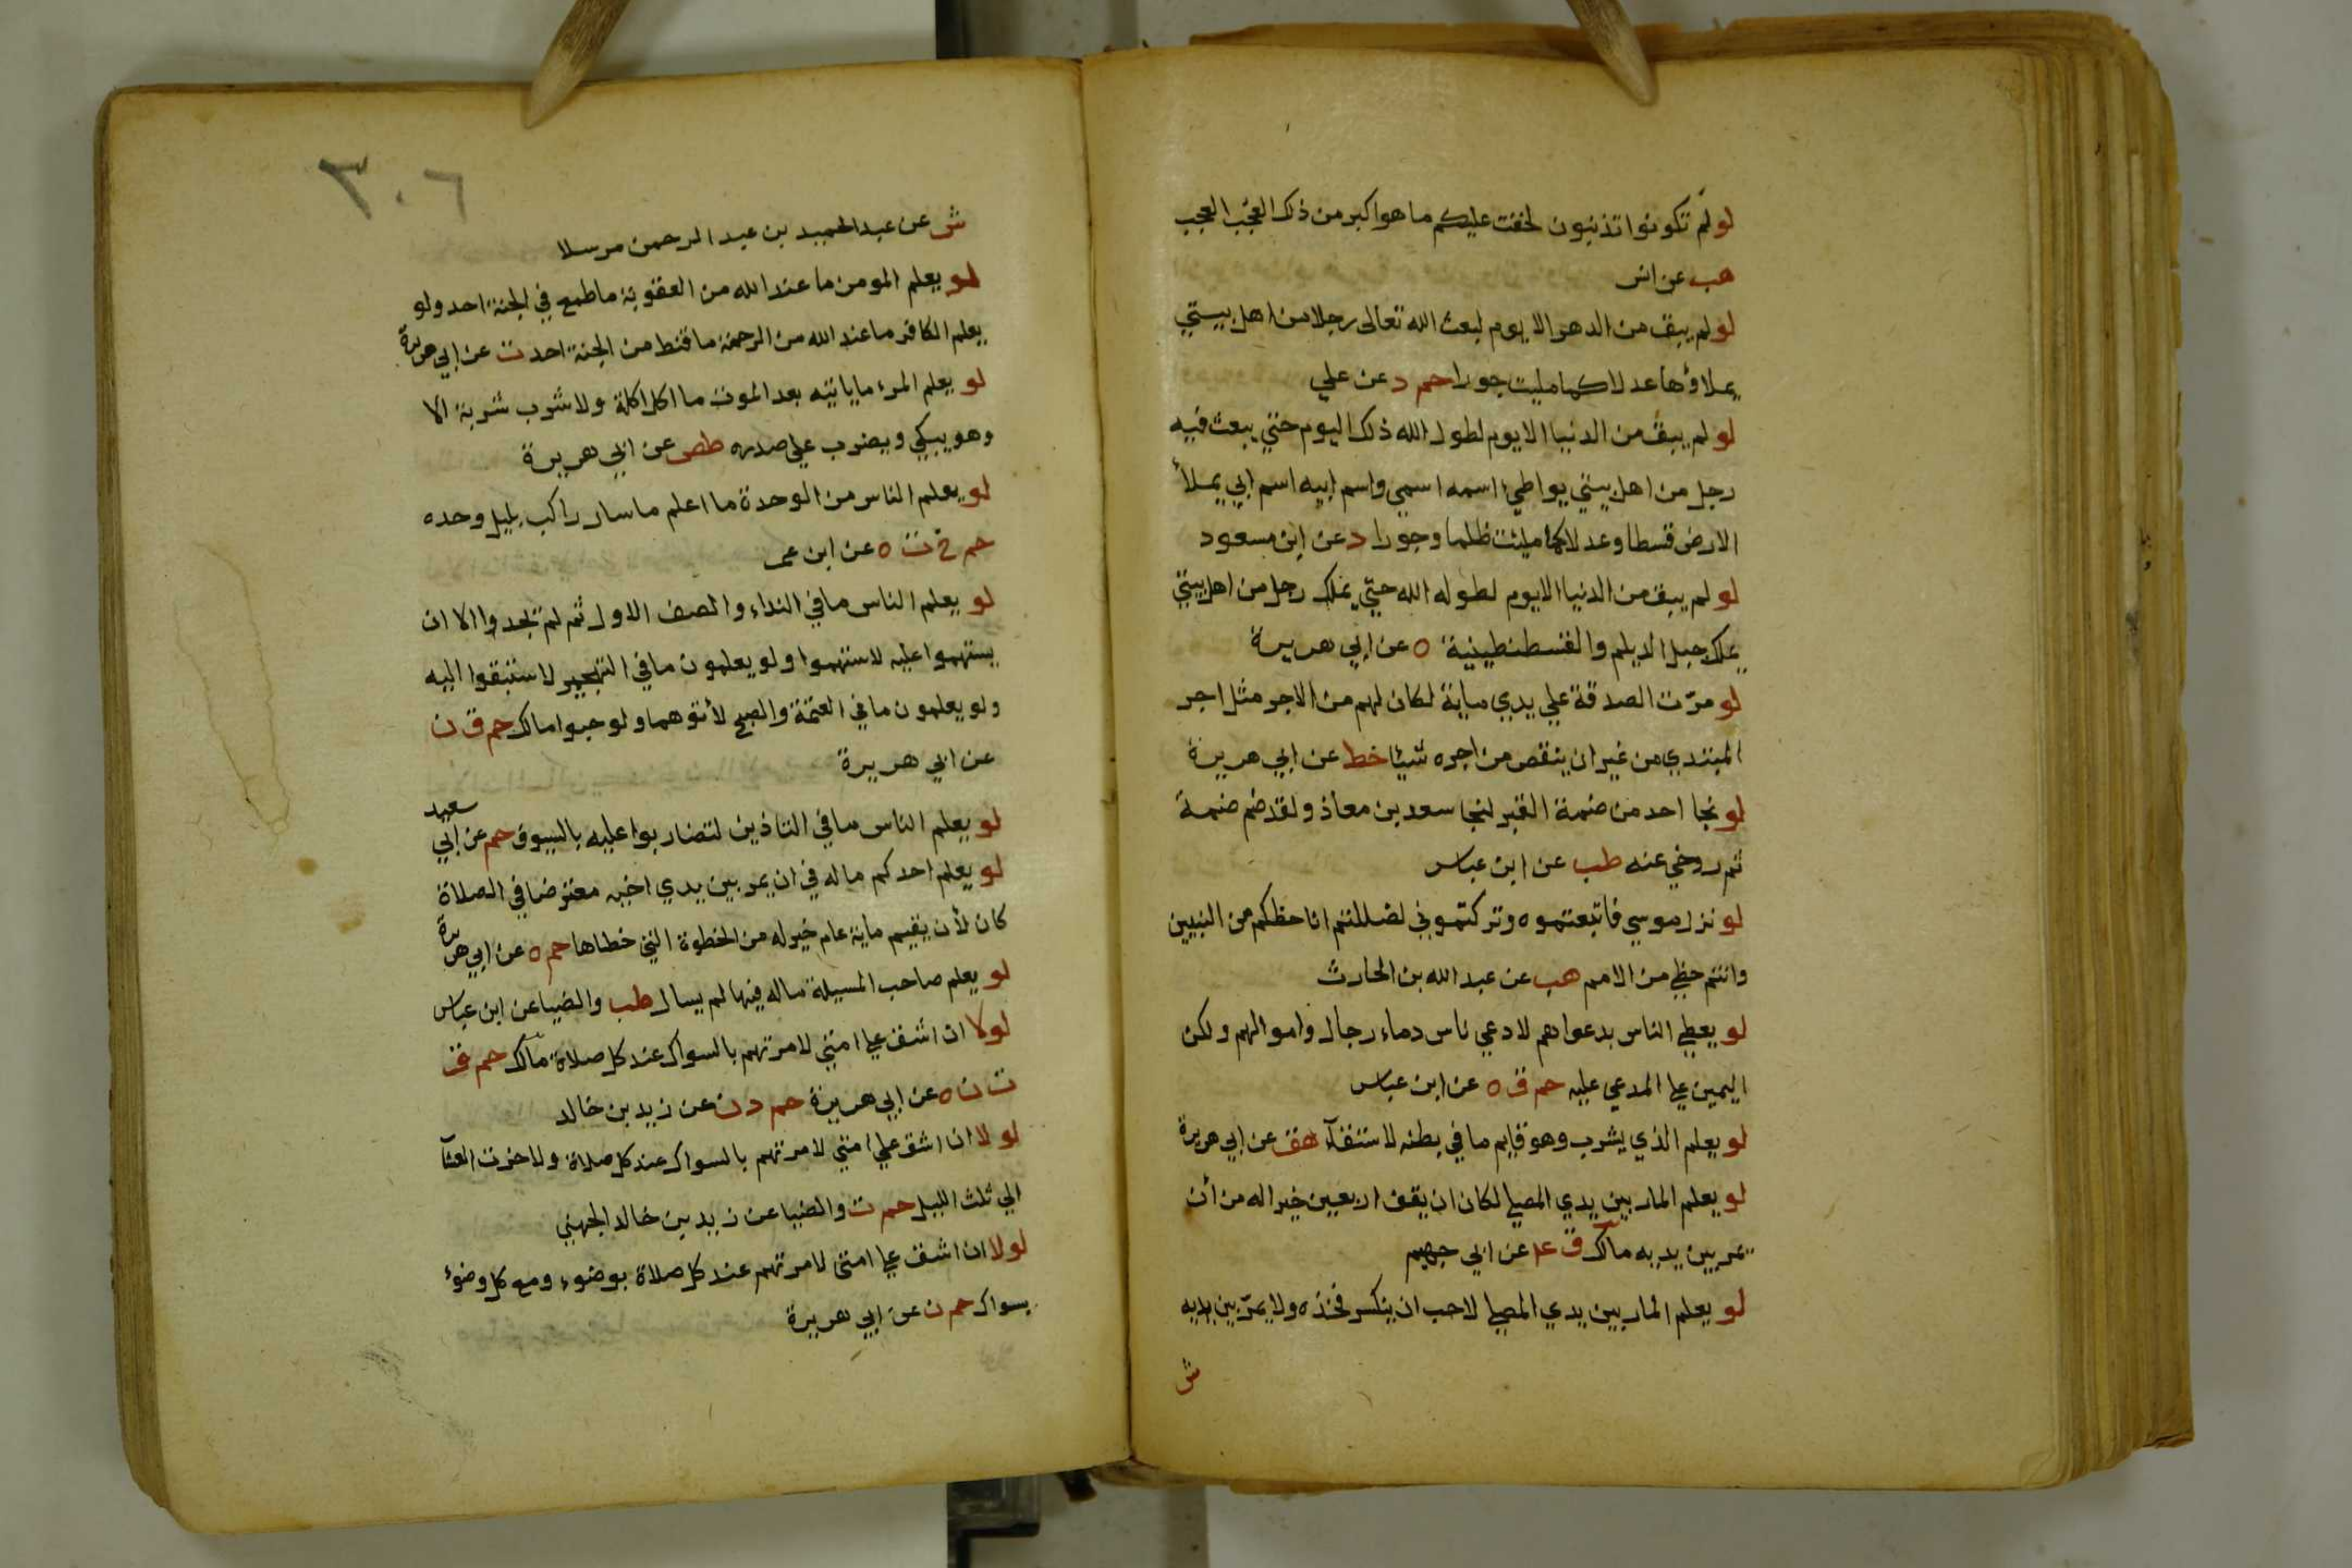 لو لم تكونوا تذنبون لخفت عليكم ما هو اكبر من ذلك العجب العجب
هب عن انس
لو لم يبق من الدهر الا يوم لبعث الله تعالى رجلا من اهل بيتي
يملاؤها عدلا كما مليت جورا حم د عن علي
لو لم يبق من الدنيا الا يوم لطول الله ذلك اليوم حتي يبعث فيه
رجل من اهل بيتي يواطيء اسمه اسمي واسم ابيه اسم ابي يملأ
الارض قسطا وعدلا كما ملئت ظلما وجورا د عن ابن مسعود
لو لم يبق من الدنيا الا يوم لطوله الله حتي يملك رجل من اهل بيتي
يملك جبل الديلم والقسطنطينية ه عن ابي هريرة
لو مرّت الصدقة علي يدي ماية لكان لهم من الاجر مثل اجر
المبتدي من غير ان ينقص من اجره شيئا خط عن ابي هريرة
لو نجا احد من ضمة القبر لنجا سعد بن معاذ ولقد ضم ضمة
ثم روخي عنه طب عن ابن عباس
لو نزل موسي فاتبعتموه وتركتموني لضللتم انا حظكم من النبيين
وانتم حظي من الامم هب عن عبد الله بن الحارث
لو يعطي الناس بدعواهم لادعي ناس دماء رجال واموالهم ولكن
اليمين علي المدعي عليه حم ق ه عن ابن عباس
لو يعلم الذي يشرب وهو قايم ما في بطنه لاستقآء هق عن ابي هريرة
لو يعلم المار بين يدي المصلي لكان ان يقف اربعين خيرا له من أن
يمر بين يديه مالك ق عد عن ابي جهيم
لو يعلم المار بين يدي المصلي لاحب ان ينكسر فخذه ولا يمرّ بين يديه
ش
٣٠٦
ش عن عبد الحميد بن عبد الرحمن مرسلا
لو يعلم المومن ما عند الله من العقوبة ما طمع في الجنة احد ولو
يعلم الكافر ما عند الله من الرحمة ما قنط من الجنة احد ت عن ابي هريرة
لو يعلم المرء ما ياتيه بعد الموت ما اكل اكلة ولا شرب شربة الا
وهو يبكي ويضرب علي صدره طص عن ابي هريرة
لو يعلم الناس من الوحدة ما اعلم ما سار راكب بليل وحده
حم خ ت ه عن ابن عمر
لو يعلم الناس ما في النداء والصف الاول ثم لم تجدوا الا ان
يستهموا عليه لاستهموا ولو يعلمون ما في التهجير لاستبقوا اليه
ولو يعلمون ما في العتمة والصبح لأتوهما ولو حبوا مالك حم ق ن
عن ابي هريرة
لو يعلم الناس ما في التاذين لتضاربوا عليه بالسيوف حم عن ابي سعيد
لو يعلم احدكم ما له في ان يمر بين يدي اخيه معترضا في الصلاة
كان لأن يقيم ماية عام خير له من الخطوة التي خطاها حم ه عن ابي هريرة
لو يعلم صاحب المسيلة ما له فيها لم يسال طب والضيا عن ابن عباس
لولا ان اشق علي امتي لامرتهم بالسواك عند كل صلاة مالك حم ق
ت ن ه عن ابي هريرة حم د ن عن زيد بن خالد
لولا ان اشق علي امتي لامرتهم بالسواك عند كل صلاة ولاخرت العشآ
الي ثلث الليل حم ت والضيا عن زيد بن خالد الجهني
لولا ان اشق علي امتي لامرتهم عند كل صلاة بوضوء ومع كل وضوء
بسواك حم ن عن ابي هريرة